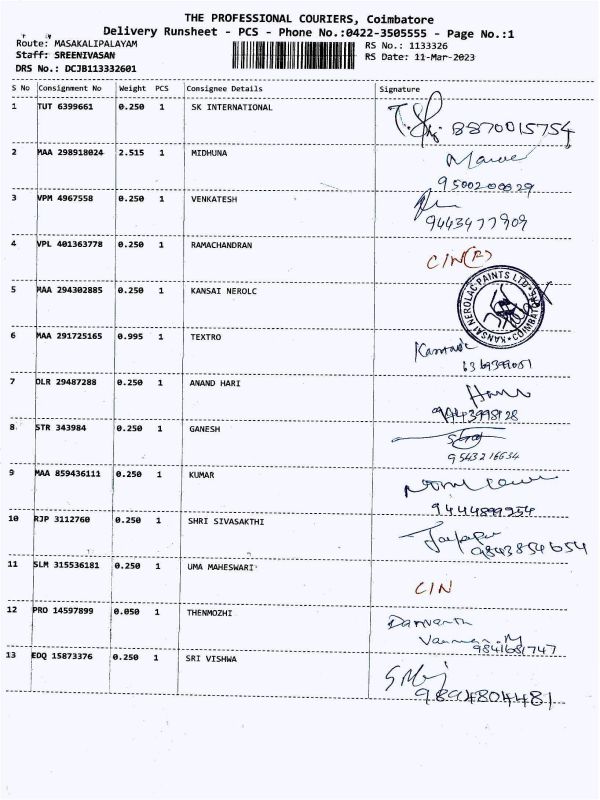 THE PROFESSIONAL COURIERS, Coimbatore
Delivery Runsheet - PCS - Phone No.:0422-3505555 - Page No.:1
Route: MASAKALIPALAYAM RS No.: 1133326
Staff: SREENIVASAN RS Date: 11-Mar-2023
DRS No.: DCJB113332601
S No Consignment No Weight PCS Consignee Details Signature
1 TUT 6399661 0.250 1 SK INTERNATIONAL
8870015754
2 MAA 298918024 2.515 1 MIDHUNA
9500200029
3 VPM 4967558 0.250 1 VENKATESH
9443477909
4 VPL 401363778 0.250 1 RAMACHANDRAN
C/N(R)
5 MAA 294302885 0.250 1 KANSAI NEROLC
KANSAI NEROLAC PAINTS LTD. COIMBATORE
6 MAA 291725165 0.995 1 TEXTRO
7 DLR 29487288 0.250 1 ANAND HARI
8 STR 343984 0.250 1 GANESH
9543216634
9 MAA 859436111 0.250 1 KUMAR
9444899954
10 RJP 3112760 0.250 1 SHRI SIVASAKTHI
9843854654
11 SLM 315536181 0.250 1 UMA MAHESWARI
C/N
12 PRO 14597899 0.050 1 THENMOZHI
9841681747
13 EDQ 15873376 0.250 1 SRI VISHWA
9894804481